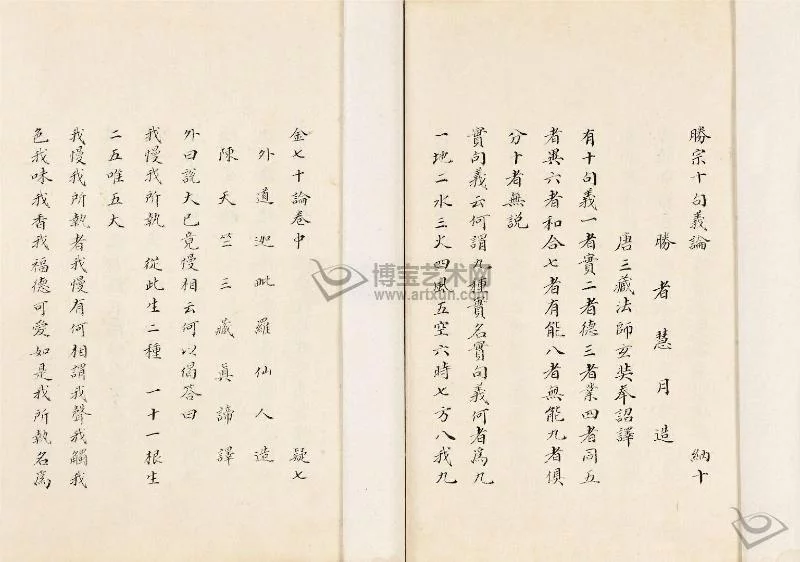 勝宗十句義論 納十
勝者慧月造
唐三藏法師玄奘奉詔譯
有十句義一者實二者德三者業四者同五
者異六者和合七者有能八者無能九者俱
分十者無説
實句義云何謂九種實名實句義何者爲九
一地二水三火四風五空六時七方八我九
金七十論卷中 疑七
外道迦毗羅仙人造
陳天竺三藏眞諦譯
外曰說大已竟慢相云何以偈答曰
我慢我所執 從此生二種 一十一根生
二五唯五大
我慢我所執者我慢有何相謂我聲我觸我
色我味我香我福德可愛如是我所執名爲
博宝艺术网
www.artxun.com